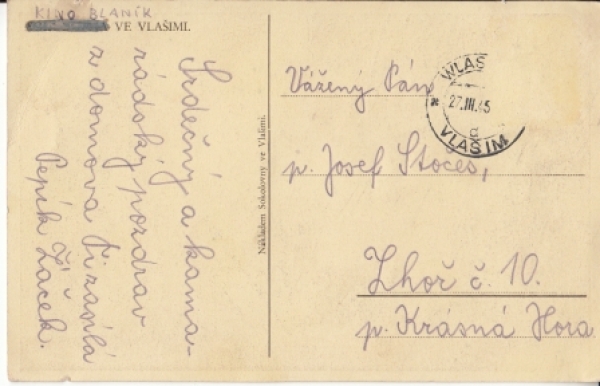 KINO BLANÍK
VE VLAŠIMI.
Srdečný a kama-
rádský pozdrav
z domova Ti zasílá
Pepík Žáček.
Nákladem Sokolovny ve Vlašimi.
WLAS
27.III.45
a
VLAŠIM
Vážený Pán
p. Josef Stoces,
Lhoř č. 10.
p. Krásná Hora